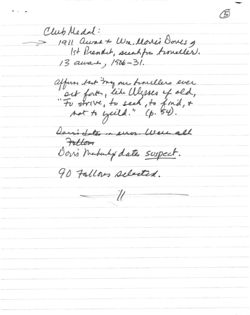 5
Club Medal:
→ 1911 award to Wm. Morris Davis of
1st President, scientific traveller.
13 awards, 1906-31.
affirm that "may our travellers ever
set forth, like Ulysses of old,
"To strive, to seek, to find, &
not to yield." (p. 54).
Davis' dates in error. Were all
Fellows
Davis' dates suspect.
90 Fellows selected.
11